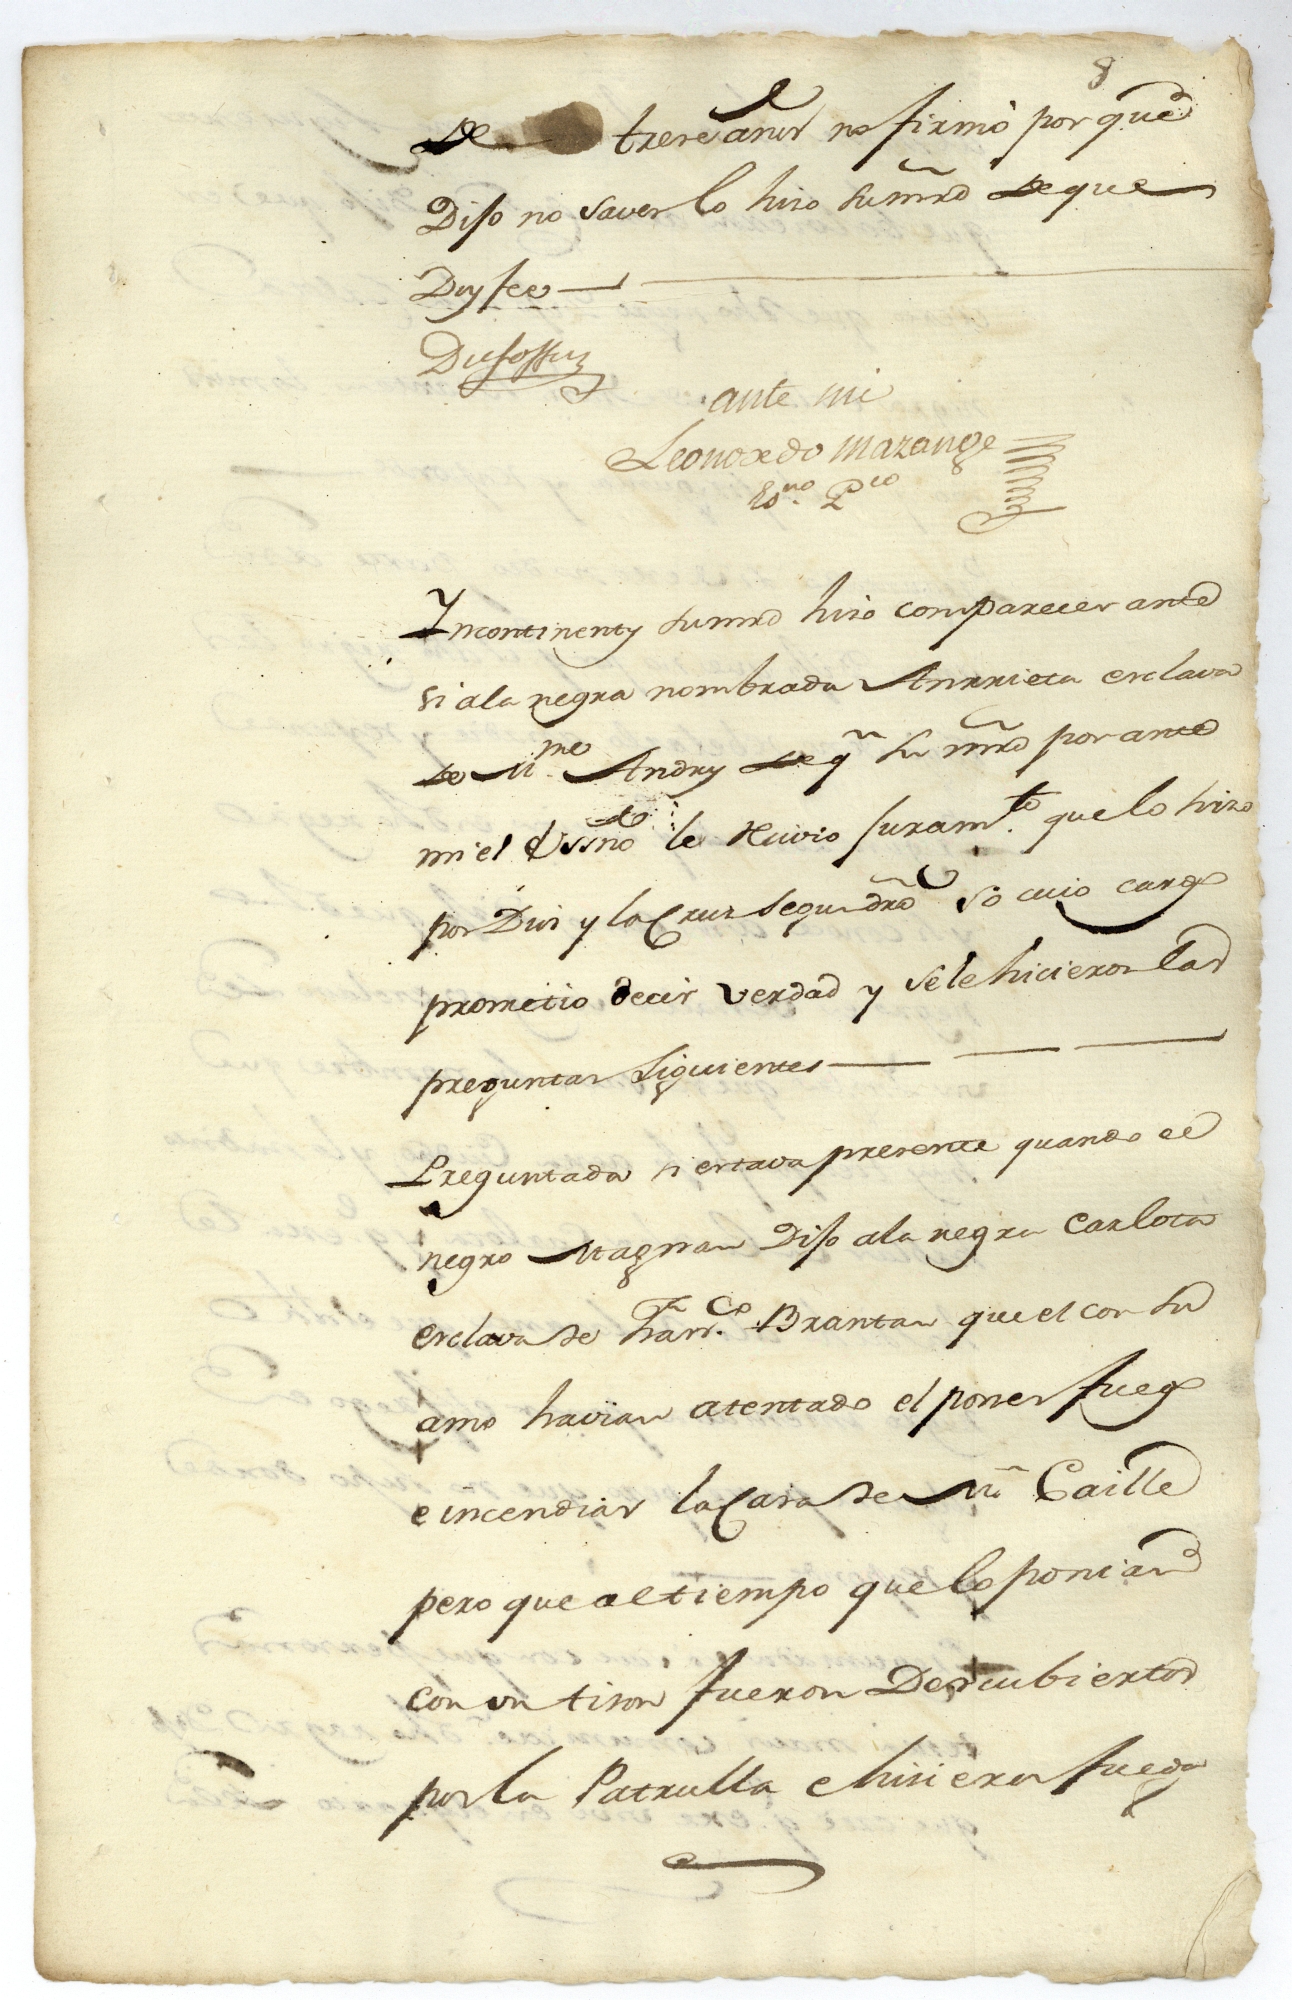 8
de trece años no firmó por que
Dijo no saver lo hizo su mrd de que
Doy fee
Dufossat
ante mi
Leonardo Mazange
Esno. Pco
Yncontinenty su mrd hizo comparecer ante
si a la negra nombrada Anrrieta esclava
de Mme. Andry de qn su mrd por ante
mi el Essno le rrivio juramto. que lo hizo
por Dios y la Cruz segun dro so cuio cargo
prometio decir verdad y se le hicieron las
preguntas siguientes
Preguntada si estava presente quando el
negro Magnan Dijo a la negra Carlota
esclava de Franco. Brantan que el con su
amo havian atentado el poner fuego
e incendiar la Casa de Mr Caille
pero que al tiempo que lo ponian
con un tison fueron Descubiertos
por la Patrulla e hicieron fuego